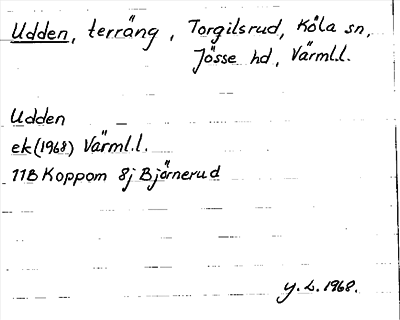 Udden, terräng, Torgilsrud, Köla sn,
Jösse hd, Värml.l.
Udden
ek(1968) Värml.l.
11B Koppom 8j Bjärnerud
Y.L. 1968.